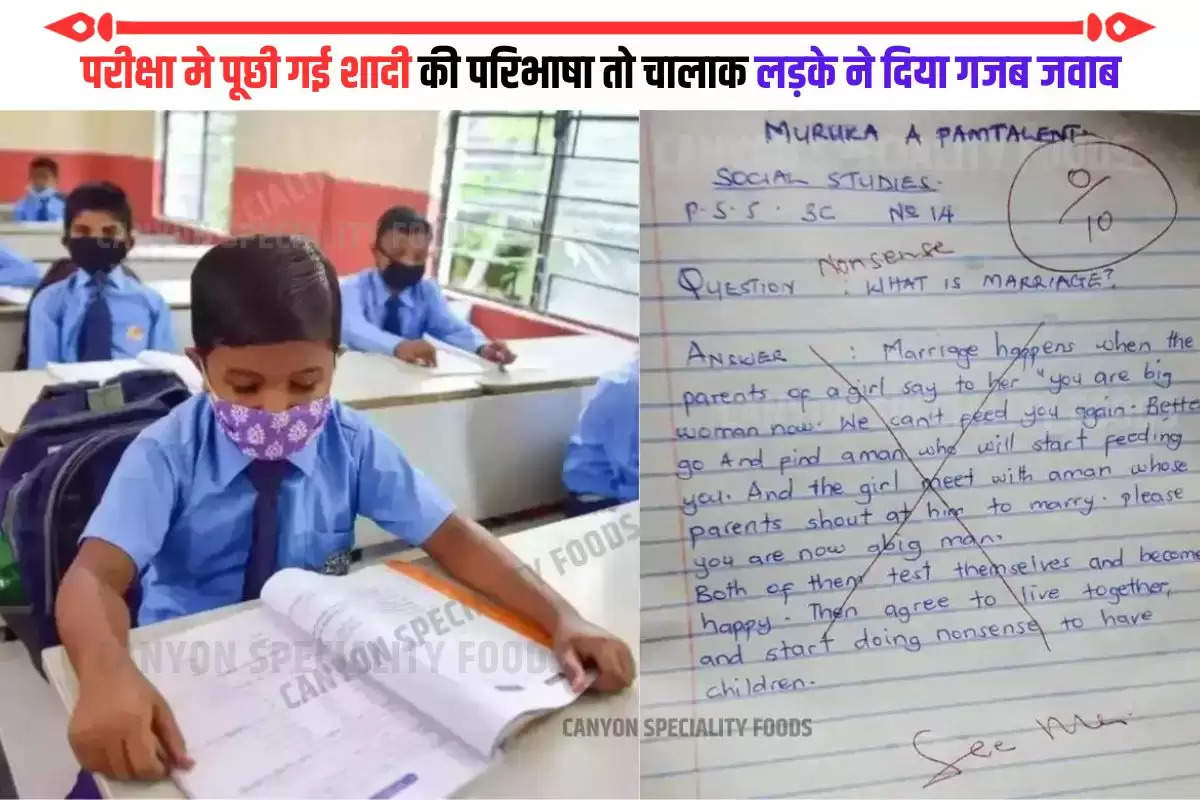 परीक्षा मे पूछी गई शादी की परिभाषा तो चालाक लड़के ने दिया गजब जवाब
MURUKA A PAMTALENT.
SOCIAL STUDIES.
P.S.5. 3C No 14
0/10
Nonsense
QUESTION : WHAT IS MARRIAGE?
ANSWER : Marriage happens when the
parents of a girl say to her "you are big
woman now. We can't feed you again. Bette
go And find aman who will start feeding
you. And the girl meet with aman whose
parents shout at him to marry. please
you are now abig man.
Both of them test themselves and become
happy. Then agree to live together,
and start doing nonsense to have
children.
See Me.
CANYON SPECIALITY FOODS
CANYON SPECIALITY FOODS
CANYON SPECIALITY FOODS
CANYON SPECIALITY FOODS